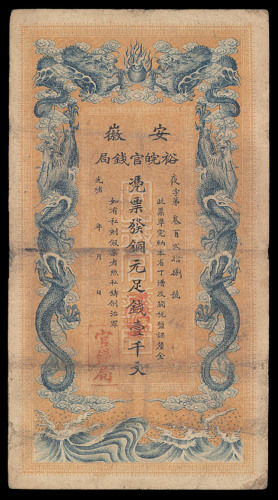 安徽
裕皖官錢局
夜字第叁百貳拾捌號
此票準完納本省丁漕及關稅鹽課釐金
憑票發銅元足錢壹千文
如有私刻假票者照私鑄制治罪
光緒 年 月 日
官錢局